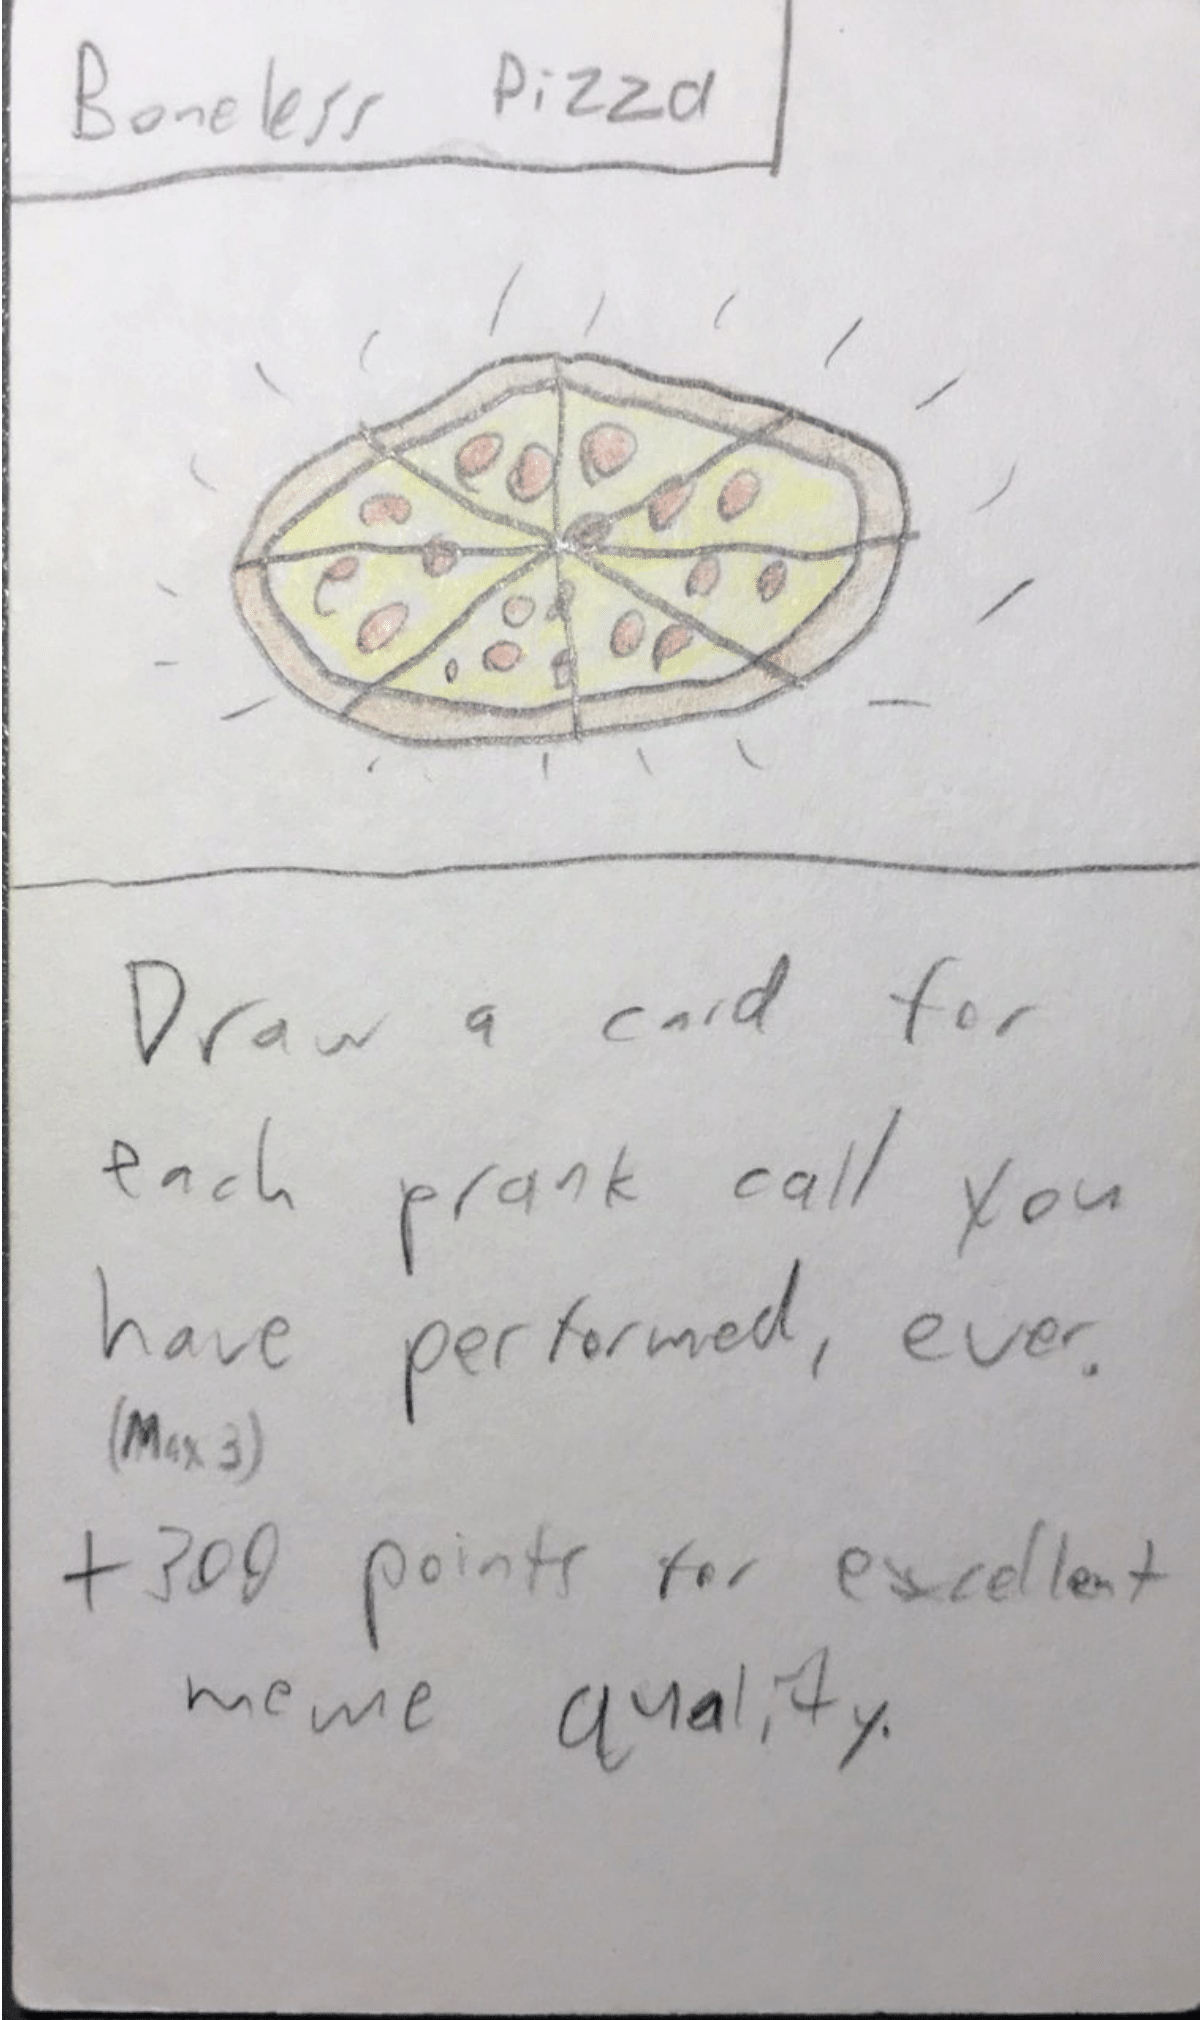 Boneless Pizza
Draw a card for
each prank call you
have performed, ever.
(Max 3)
+300 points for excellent
meme quality.